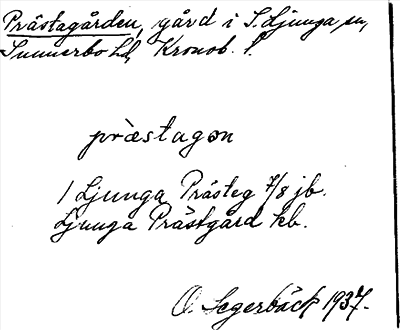 Prästagården, gård i S. Ljunga sn,
Sunnerbo hd, Kronob. l.
præstagɔn
1 Ljunga Prästeg 7/8 jb.
Ljunga Prästgård kb.
O. Segerbäck 1937.